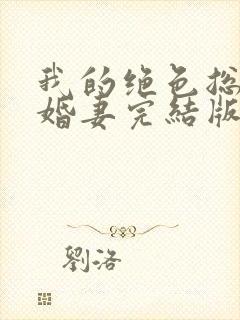 我的绝色总
婚妻完结版
劉洛